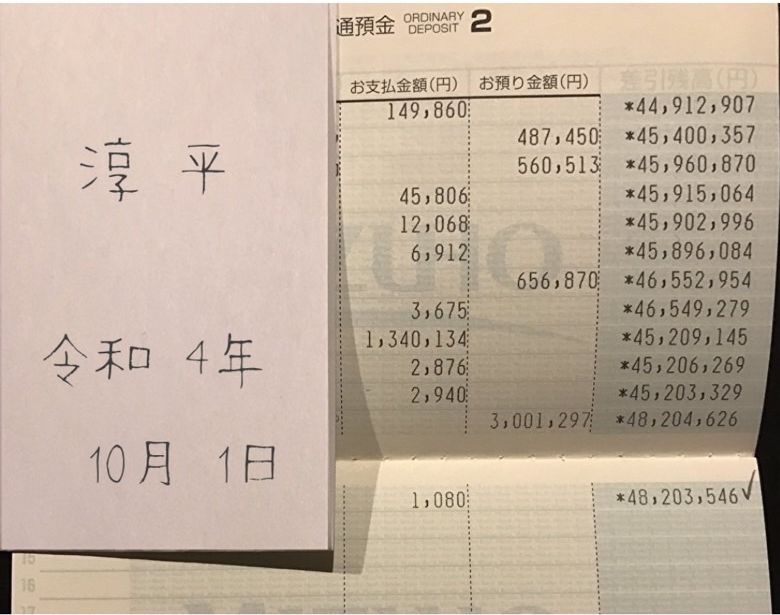 淳 平
令和 4年
10月 1日
通預金 ORDINARY DEPOSIT 2
お支払金額(円) お預り金額(円) 差引残高(円)
149,860 *44,912,907
487,450 *45,400,357
560,513 *45,960,870
45,806 *45,915,064
12,068 *45,902,996
6,912 *45,896,084
656,870 *46,552,954
3,675 *46,549,279
1,340,134 *45,209,145
2,876 *45,206,269
2,940 *45,203,329
3,001,297 *48,204,626
1,080 *48,203,546
15
16
17